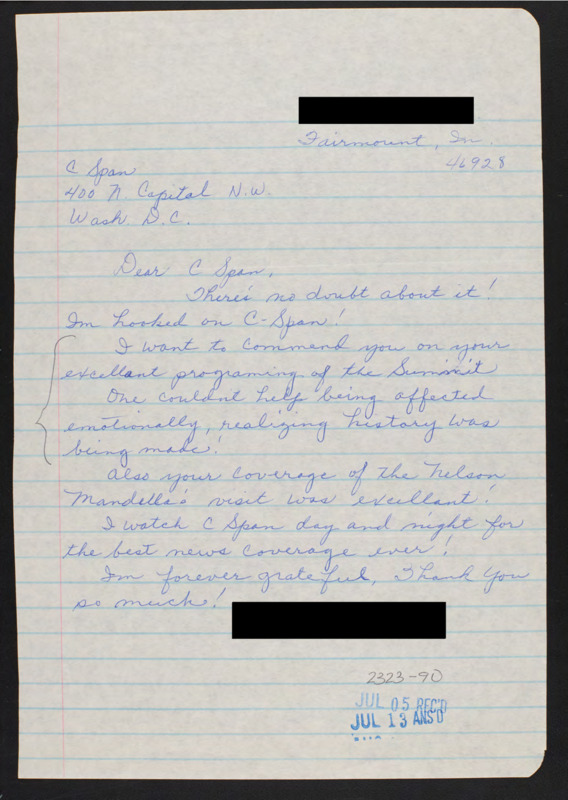 Fairmount, In.
46928
C Span
400 N. Capital N.W.
Wash D.C.
Dear C Span,
There's no doubt about it!
Im hooked on C-Span!
I want to commend you on your
excellant programing of the Summit
One couldnt help being affected
emotionally, realizing history was
being made!
Also your coverage of the Nelson
Mandella's visit was excellant!
I watch C Span day and night for
the best news coverage ever!
Im forever grateful, Thank you
so much!
2323-90
JUL 05 REC'D
JUL 13 ANS'D